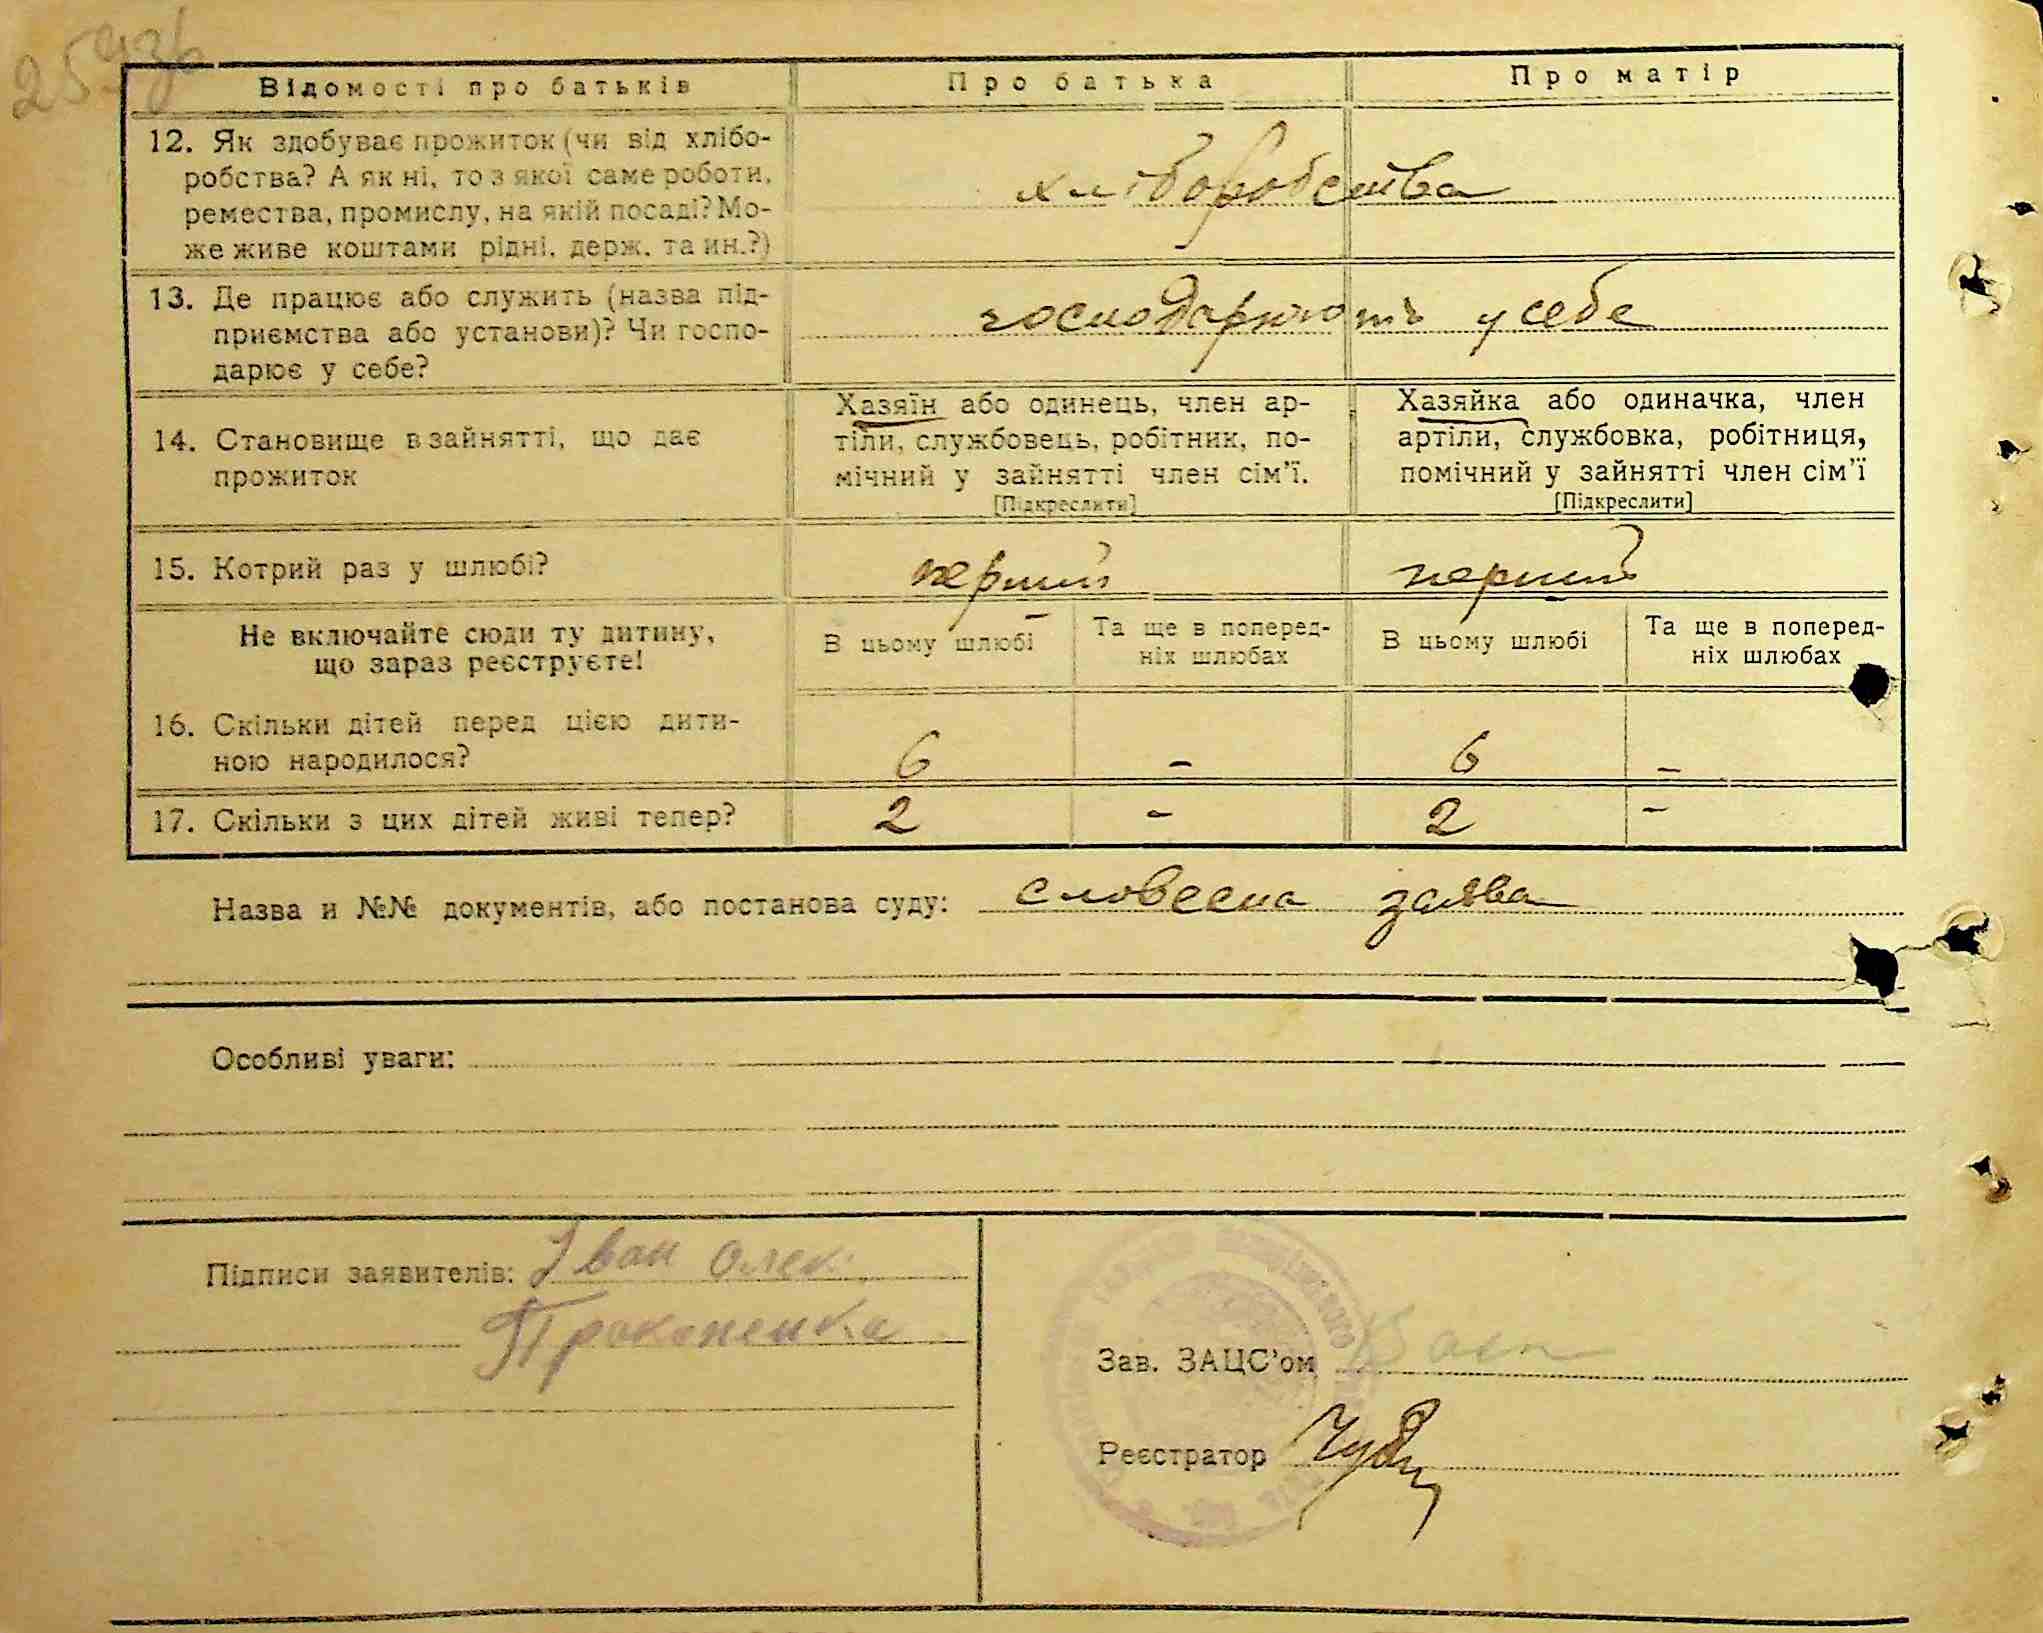 Відомості про батьків
Про батька
Про матір
12. Як здобуває прожиток (чи від хлібо-
робства? А як ні, то з якої саме роботи,
ремества, промислу, на якій посаді? Мо-
же живе коштами рідні, держ. та ин.?)
хліборобства
13. Де працює або служить (назва під-
приємства або установи)? Чи госпо-
дарює у себе?
господарюють у себе
14. Становище в зайнятті, що дає
прожиток
Хазяїн або одинець, член ар-
тіли, службовець, робітник, по-
мічний у зайнятті член сім'ї.
[Підкреслити]
Хазяйка або одиначка, член
артіли, службовка, робітниця,
помічний у зайнятті член сім'ї
[Підкреслити]
15. Котрий раз у шлюбі?
перший
перший
Не включайте сюди ту дитину,
що зараз реєструєте!
В цьому шлюбі
Та ще в поперед-
ніх шлюбах
В цьому шлюбі
Та ще в поперед-
ніх шлюбах
16. Скільки дітей перед цією дити-
ною народилося?
6
-
6
-
17. Скільки з цих дітей живі тепер?
2
-
2
-
Назва и №№ документів, або постанова суду: словесна заява
Особливі уваги:
Підписи заявителів: Іван Олек.
Прокопенка
Зав. ЗАЦС'ом
Реєстратор